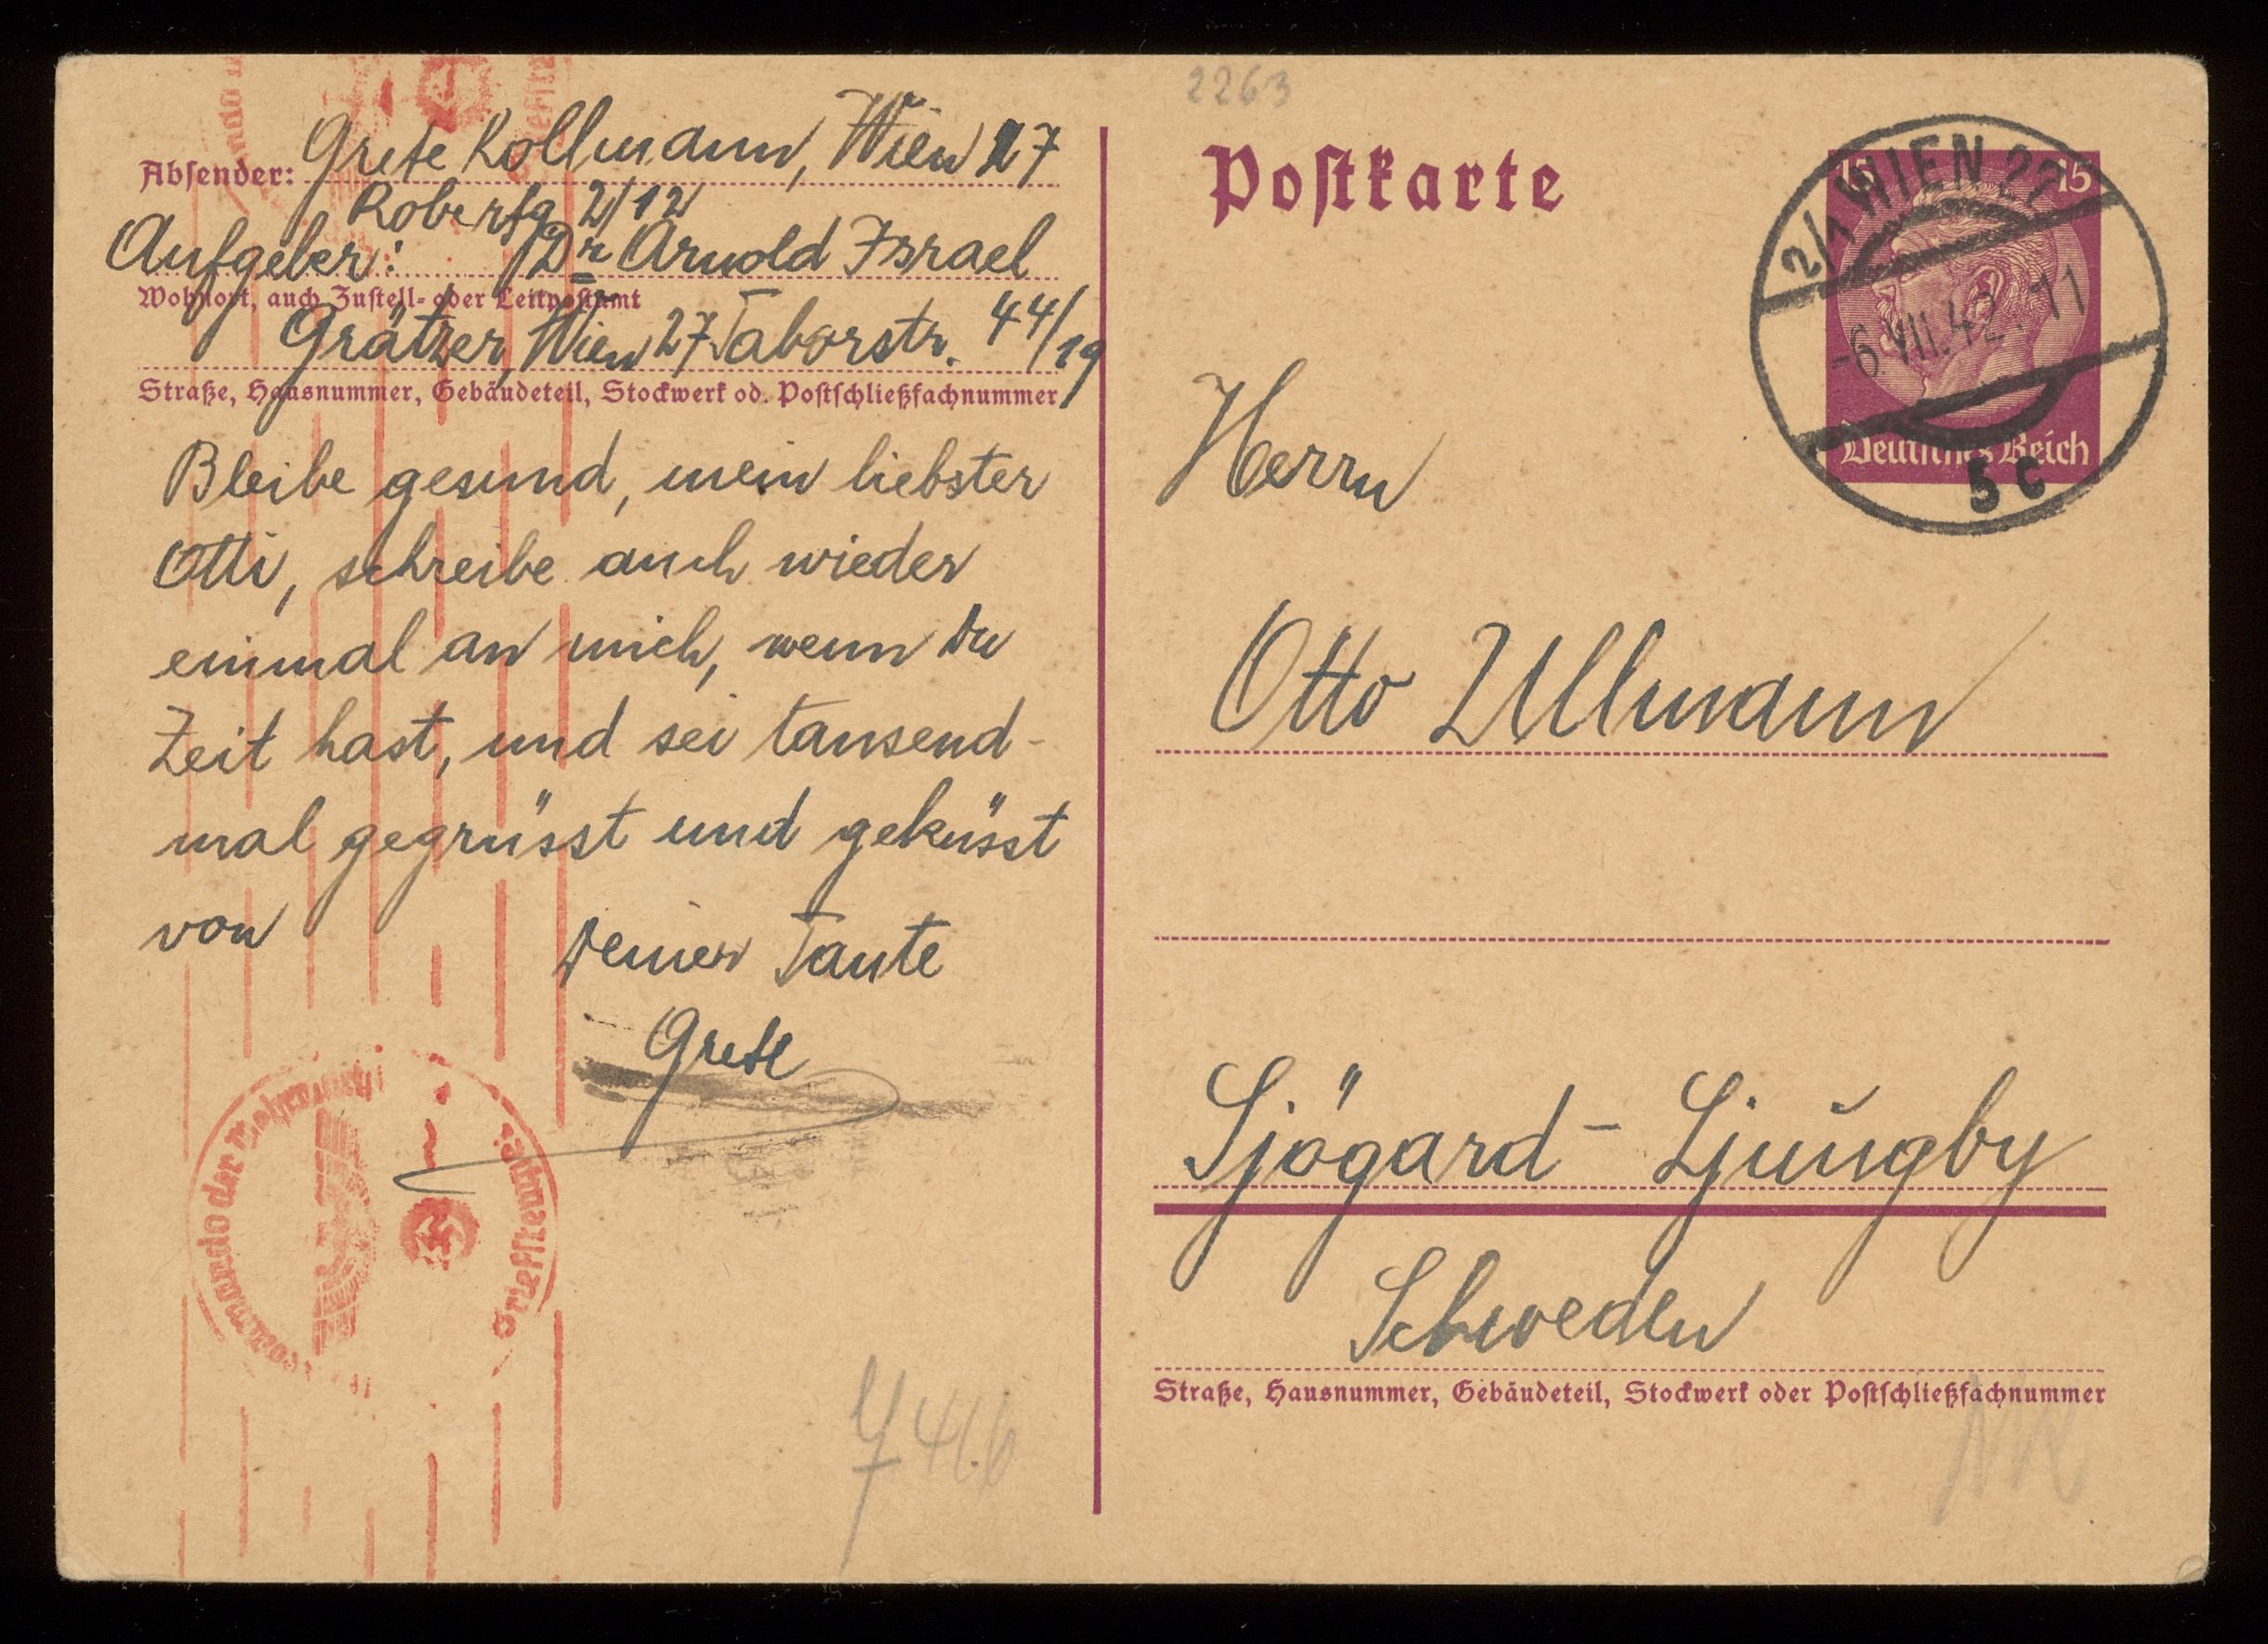 Absender: Grete Kollmann, Wien 27
Robertg 2/12
Aufgeber: Dr Arnold Israel
Wohnort, auch Zustell- oder Leitpostamt
Grätzer, Wien 27 Taborstr. 44/19
Straße, Hausnummer, Gebäudeteil, Stockwerk od. Postschließfachnummer
Bleibe gesund, mein liebster
Otti, schreibe auch wieder
einmal an mich, wenn Du
Zeit hast, und sei tausend-
mal gegrüsst und geküsst
von
Deiner Tante
Grete
Kommando der
Briefstempel
2263
Postkarte
15 15
Deutsches Reich
2/1 WIEN 27
-6.VIII.42.11
5c
Herrn
Otto Ullmann
Sjögard - Ljŭngby
Schweden
Straße, Hausnummer, Gebäudeteil, Stockwerk oder Postschließfachnummer